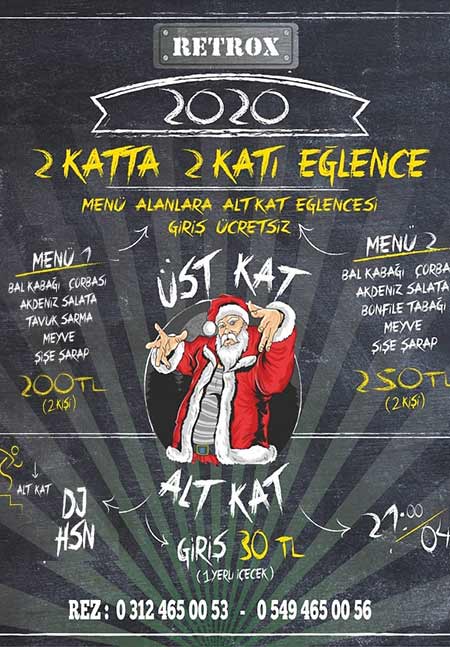 RETROX
2020
2 KATTA 2 KATI EĞLENCE
MENÜ ALANLARA ALT KAT EĞLENCESİ
GİRİŞ ÜCRETSİZ
MENÜ 1
BAL KABAĞI ÇORBASI
AKDENİZ SALATA
TAVUK SARMA
MEYVE
ŞİŞE ŞARAP
200TL
(2 KİŞİ)
ÜST KAT
MENÜ 2
BAL KABAĞI ÇORBASI
AKDENİZ SALATA
BONFİLE TABAĞI
MEYVE
ŞİŞE ŞARAP
250TL
(2 KİŞİ)
ALT KAT
ALT KAT
DJ
HSN
GİRİŞ 30 TL
(1 YERLİ İÇECEK)
21:00
/04
REZ : 0 312 465 00 53 - 0 549 465 00 56